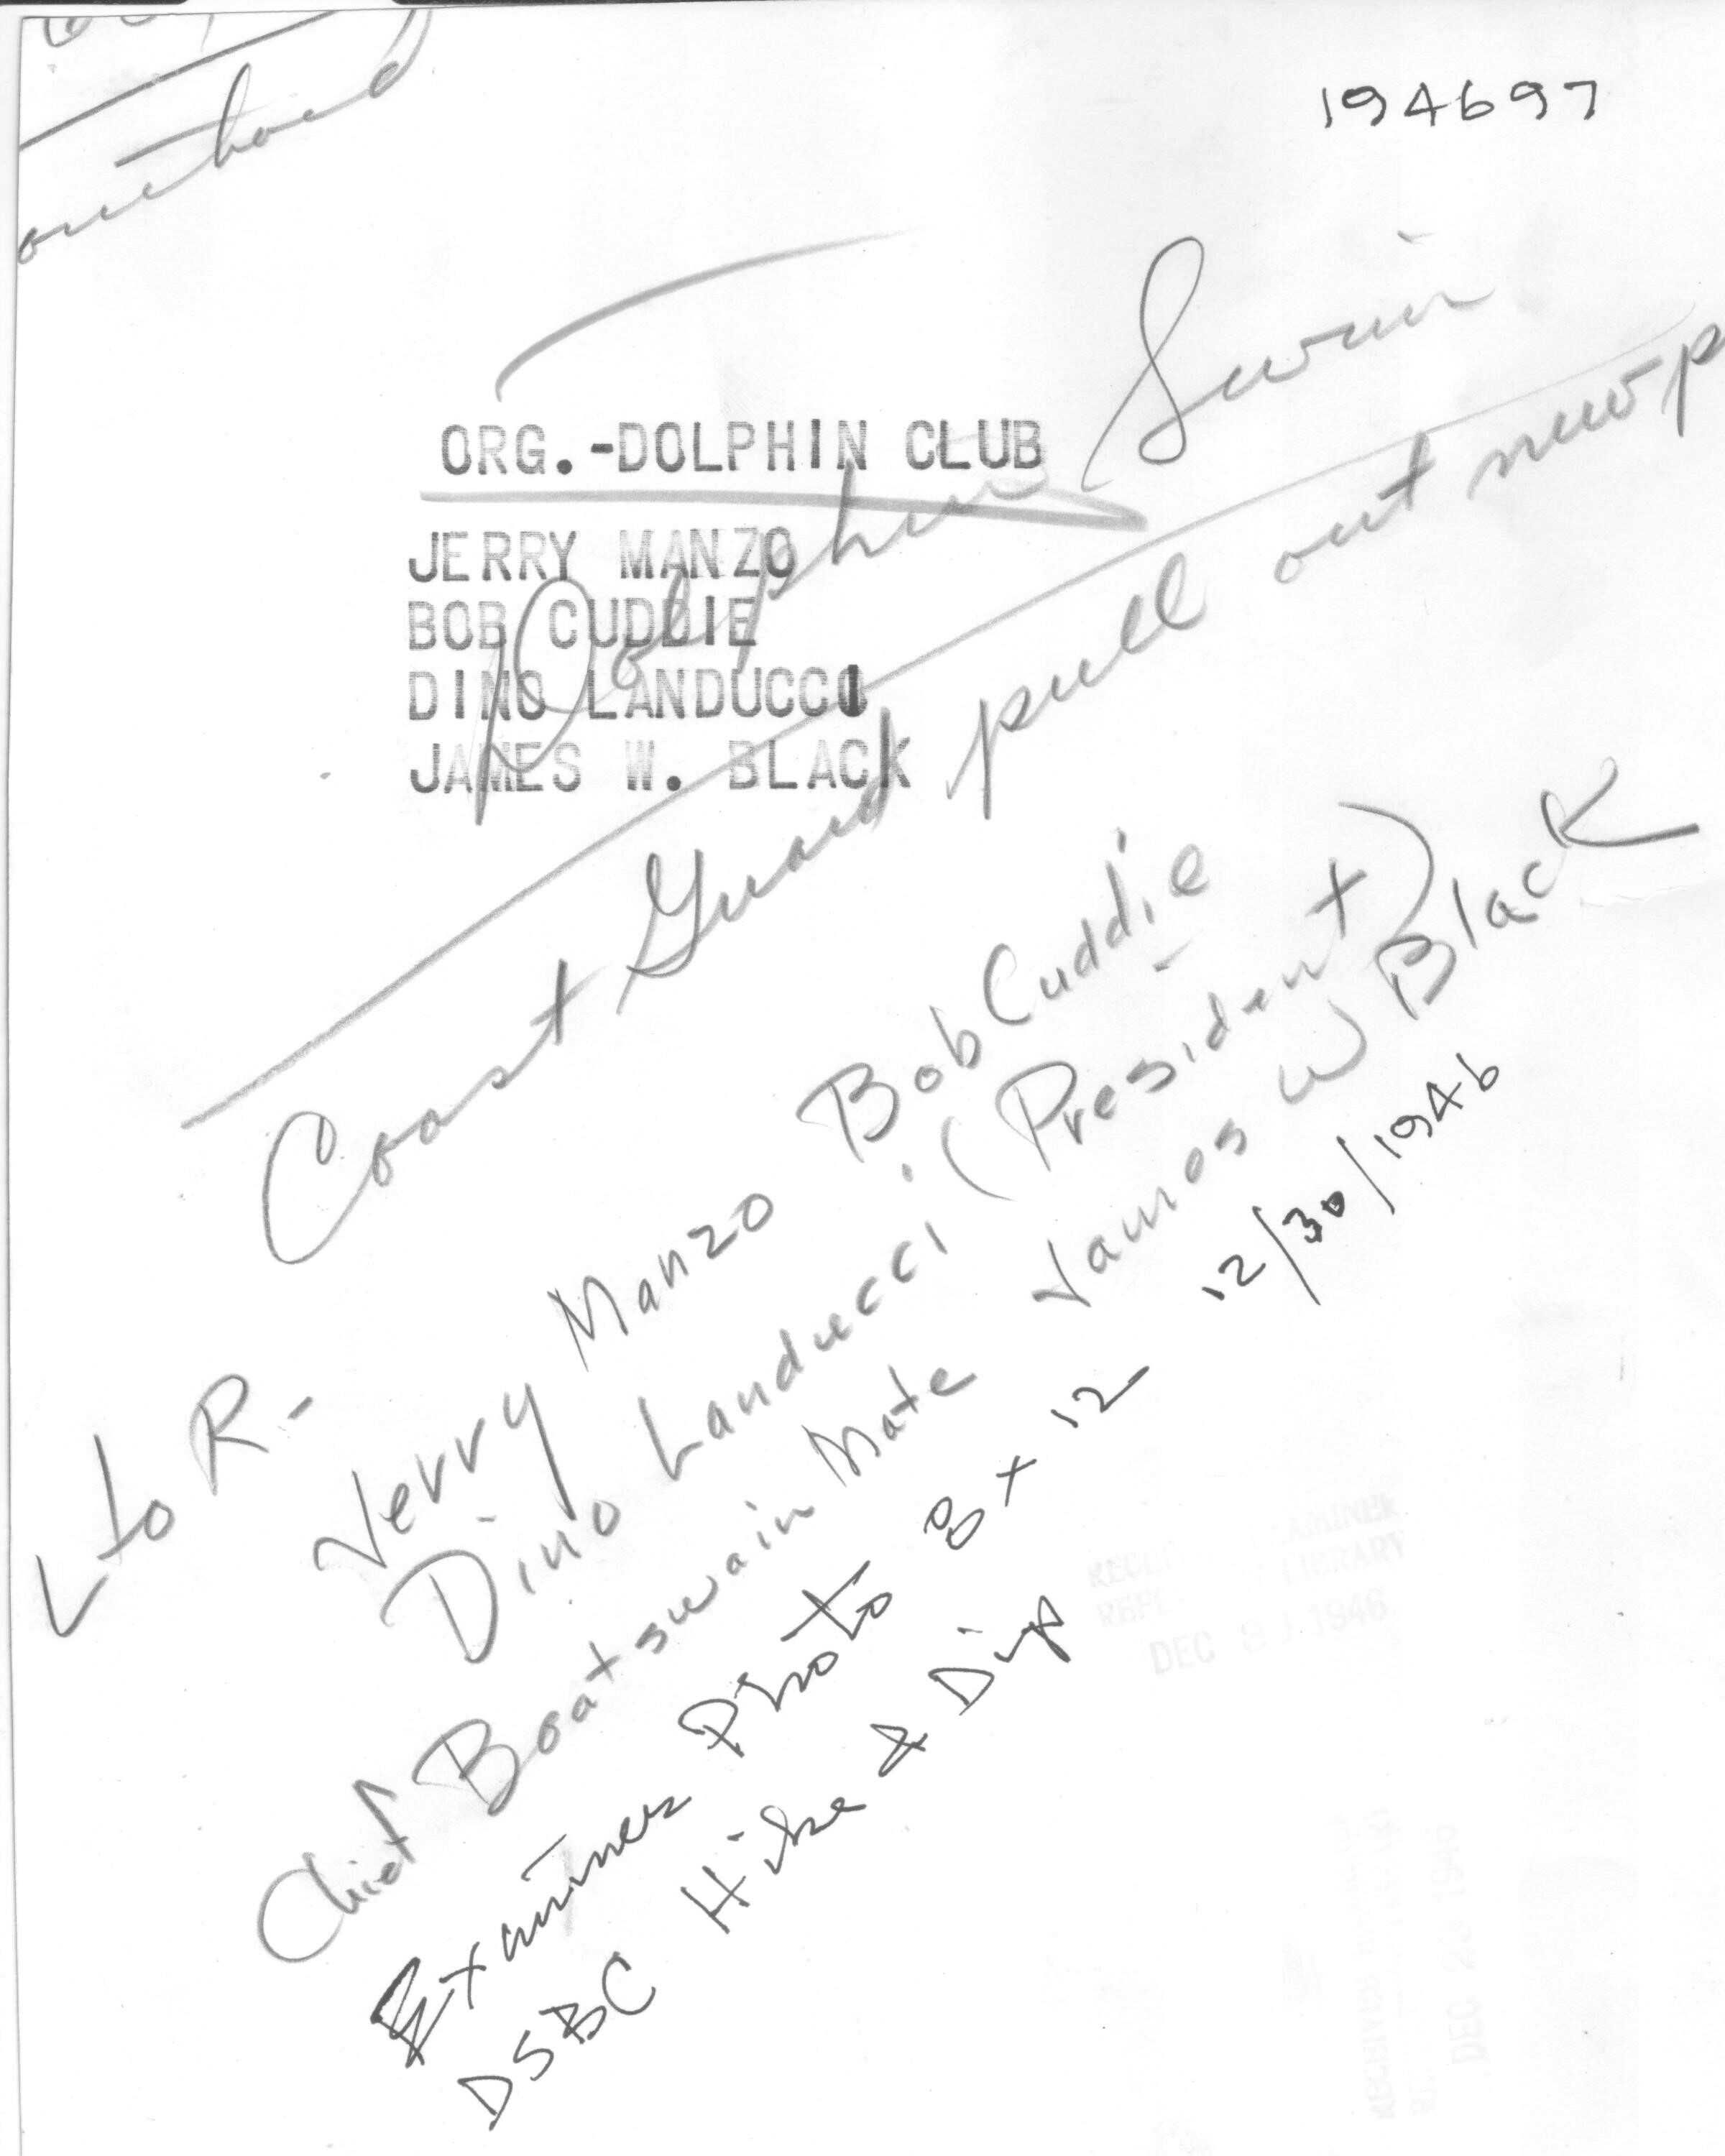 194697
ORG.-DOLPHIN CLUB
JERRY MANZO
BOB CUDDIE
DINO LANDUCCI
JAMES W. BLACK
Dolphin Swim
Coast Guard pull out
L to R-
Jerry Manzo Bob Cuddie
Dino Landucci (President)
Chief Boatswain Mate James W Black
Examiner Photo 8 x 12 12/30/1946
DSBC Hike & Dip
LIBRARY
DEC 1946
DEC